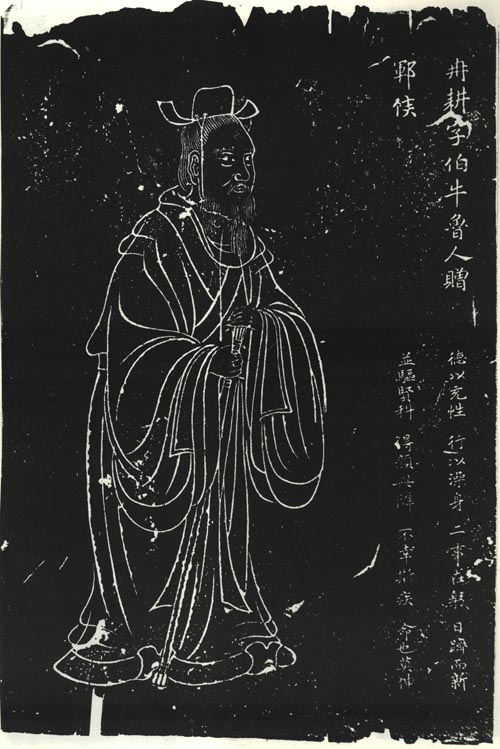 冉耕字伯牛魯人贈
鄆侯
德以充性 行以澡身 二事在躬 日躋而新
並驅賢科 得顏 隣 不幸斯疾 命也莫伸